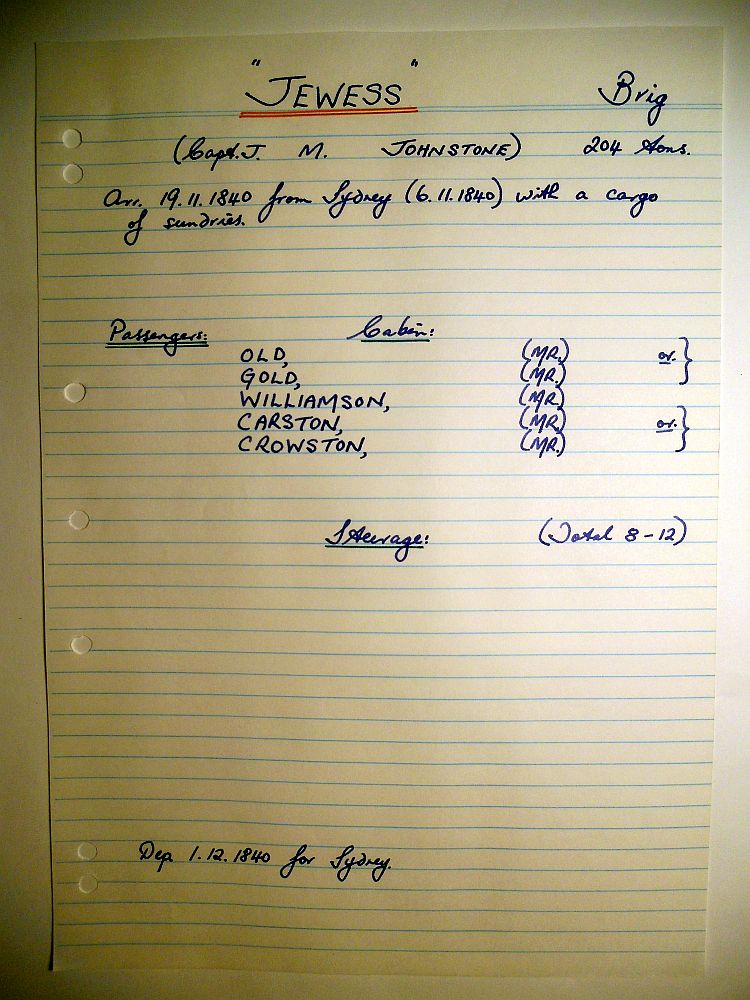 "JEWESS" Brig
(Capt. J. M. JOHNSTONE) 204 tons.
Arr. 19.11.1840 from Sydney (6.11.1840) with a cargo
of sundries.
Passengers: Cabin:
OLD, (MR.) or. }
GOLD, (MR.)
WILLIAMSON, (MR.)
CARSTON, (MR.) or. }
CROWSTON, (MR.)
Steerage: (Total 8-12)
Dep 1.12.1840 for Sydney.